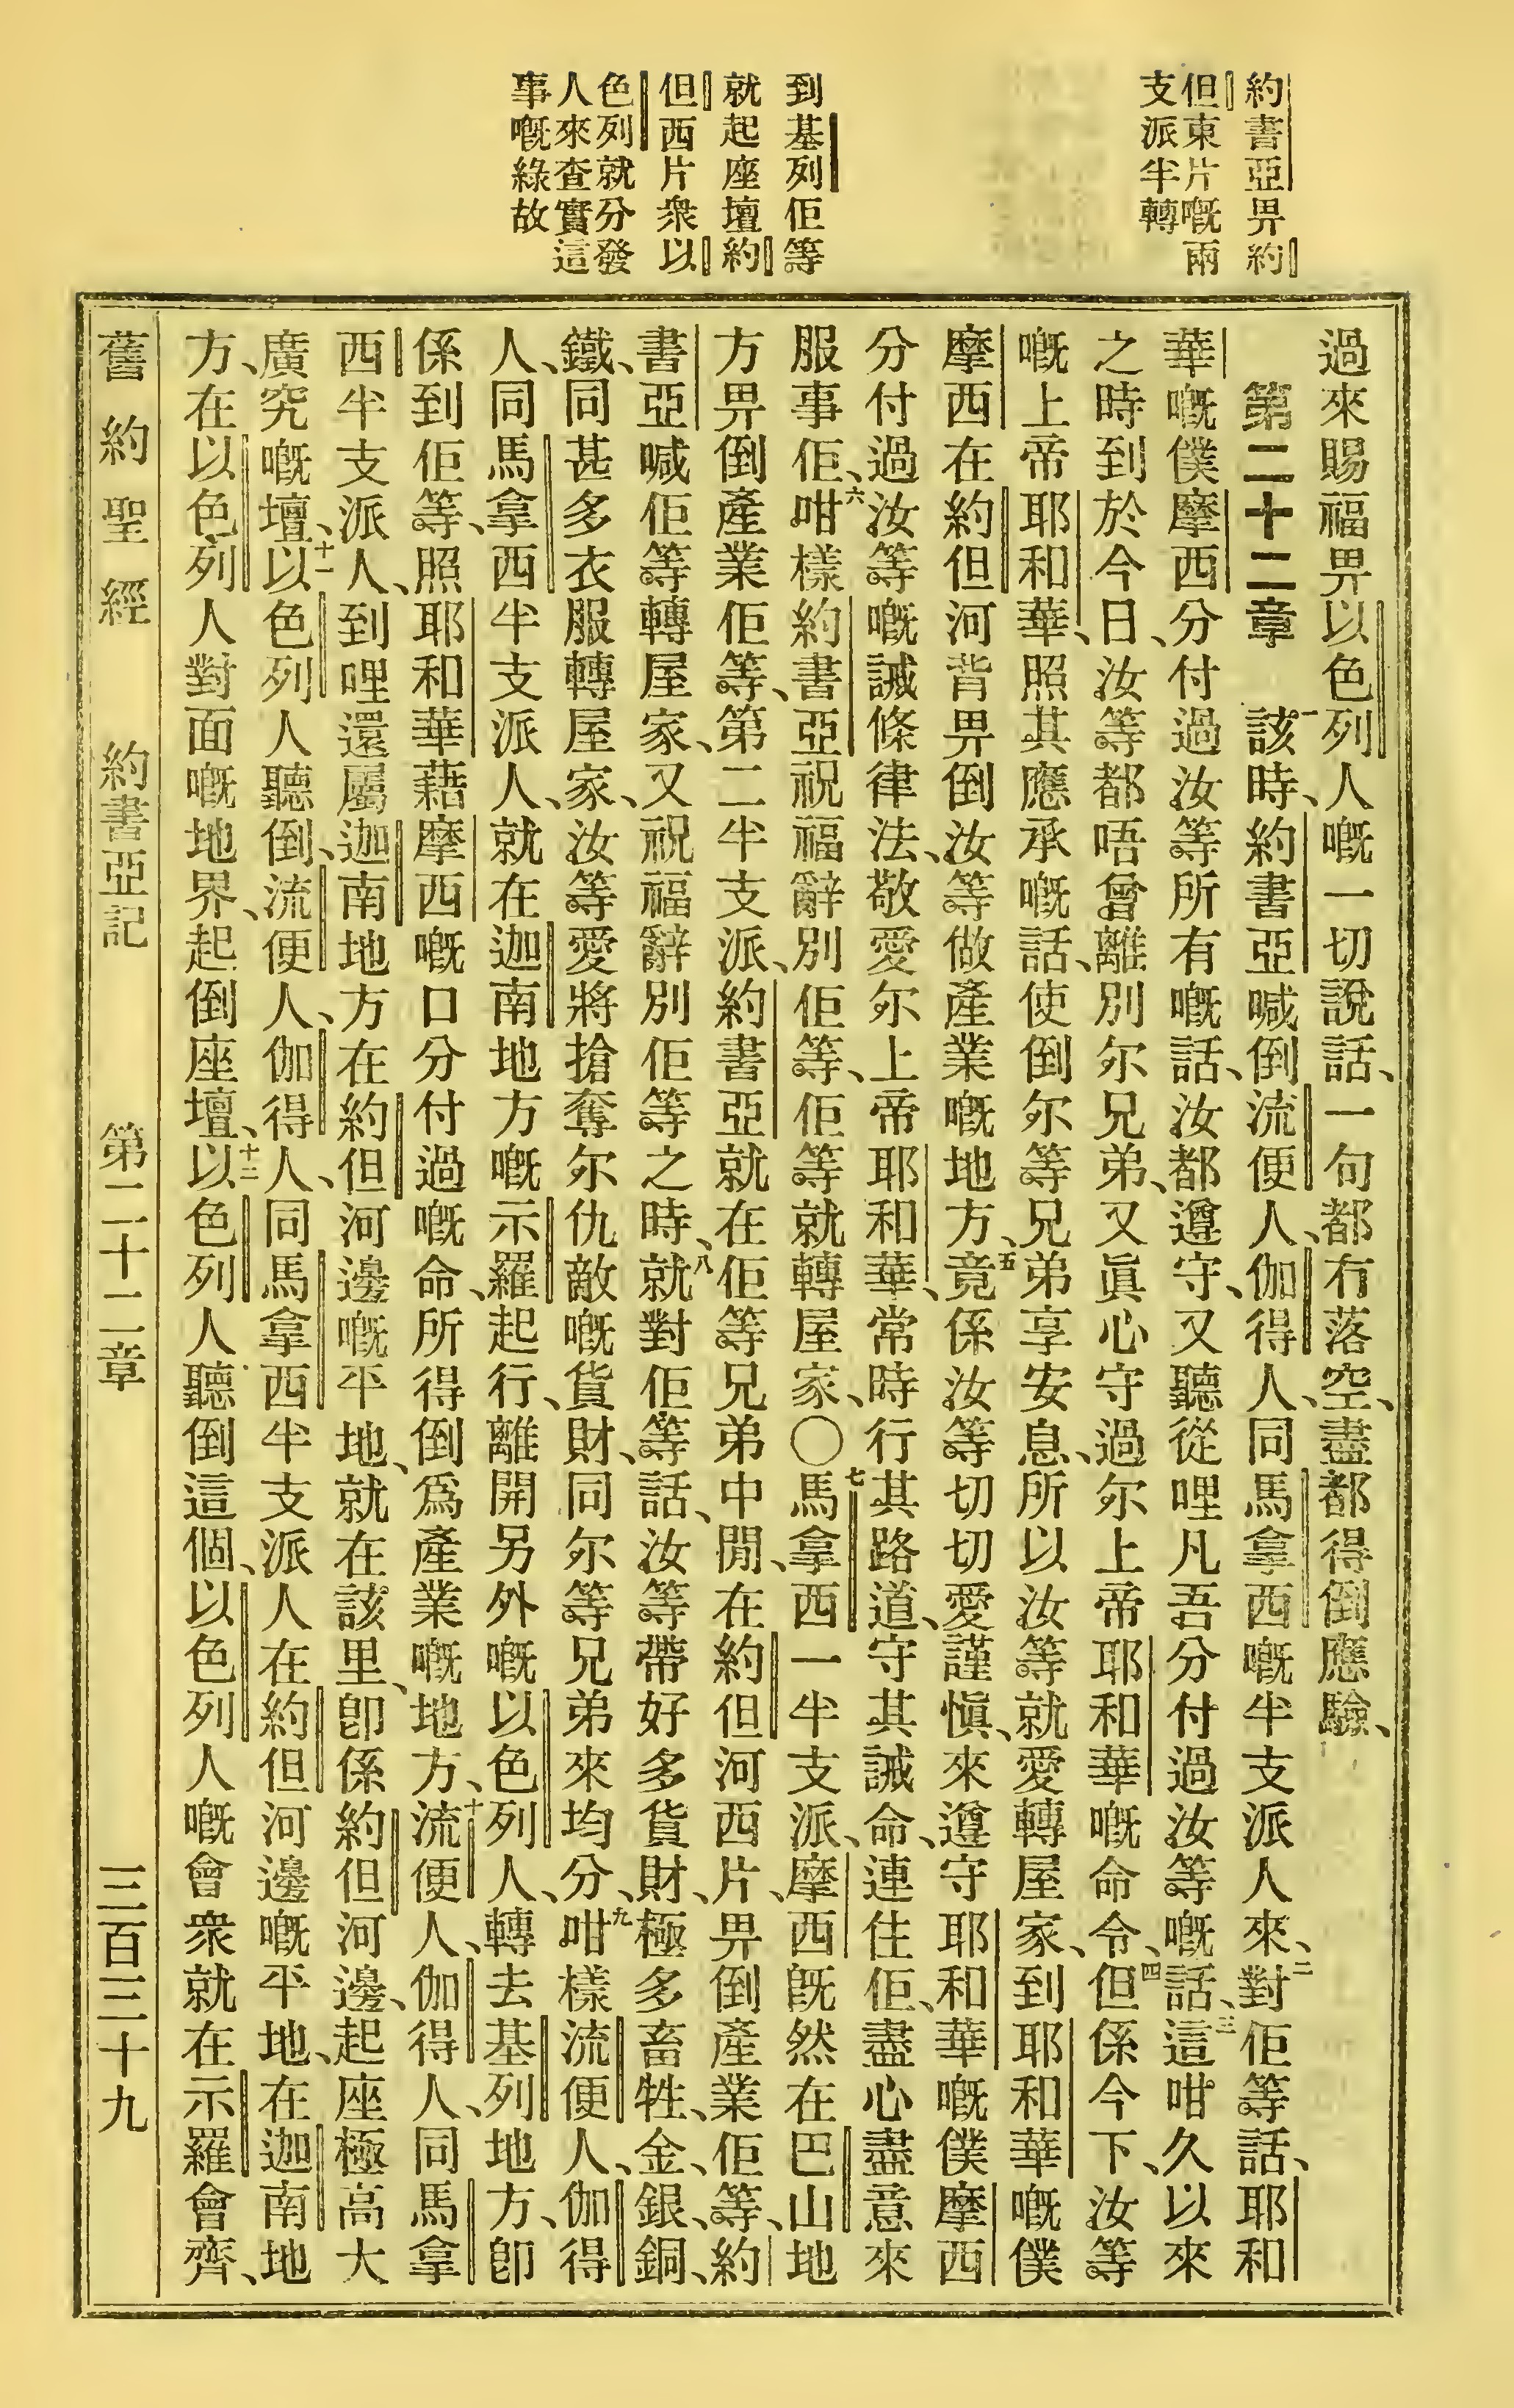 約書亞畀約
但東片嘅兩
支派半轉
到基列佢等
就起座壇約
但西片衆以
色列就分發
人來查實這
事嘅緣故
過來賜福畀以色列人嘅一切說話、一句都冇落空、盡都得倒應驗、
第二十二章 一該時、約書亞喊倒流便人、伽得人、同馬拿西嘅半支派人來、二對佢等話、耶和
華嘅僕摩西分付過汝等所有嘅話、汝都遵守、又聽從哩凡吾分付過汝等嘅話、三這咁久以來
之時到於今日、汝等都唔曾離別尔兄弟、又眞心守過尔上帝耶和華嘅命令、四但係今下、汝等
嘅上帝耶和華、照其應承嘅話、使倒尔等兄弟享安息、所以汝等就愛轉屋家、到耶和華嘅僕
摩西在約但河背畀倒汝等做產業嘅地方、五竟係汝等切切愛謹愼、來遵守耶和華嘅僕摩西
分付過汝等嘅誡條律法、敬愛尔上帝耶和華、常時行其路道、守其誡命、連住佢、盡心盡意來
服事佢、六咁樣約書亞祝福辭別佢等、佢等就轉屋家、〇七馬拿西一半支派、摩西旣然在巴山地
方畀倒產業佢等、第二半支派、約書亞就在佢等兄弟中間、在約但河西片、畀倒產業佢等、約
書亞喊佢等轉屋家、又祝福辭別佢等之時、八就對佢等話、汝等帶好多貨財、極多畜牲、金、銀、銅、
鐵、同甚多衣服轉屋家、汝等愛將搶奪尔仇敵嘅貨財、同尔等兄弟來均分、九咁樣流便人、伽得
人、同馬拿西半支派人、就在迦南地方嘅示羅起行、離開另外嘅以色列人、轉去基列地方、卽
係到佢等、照耶和華藉摩西嘅口分付過嘅命、所得倒爲產業嘅地方、十流便人、伽得人、同馬拿
西半支派人、到哩還屬迦南地方在約但河邊嘅平地、就在該里、卽係約但河邊、起座極高大
廣究嘅壇、十一以色列人聽倒、流便人、伽得人、同馬拿西半支派人在約但河邊嘅平地、在迦南地
方、在以色列人對面嘅地界、起倒座壇、十二以色列人聽倒這個、以色列人嘅會衆就在示羅會齊、
舊約聖經 約書亞記 第二十二章 三百三十九